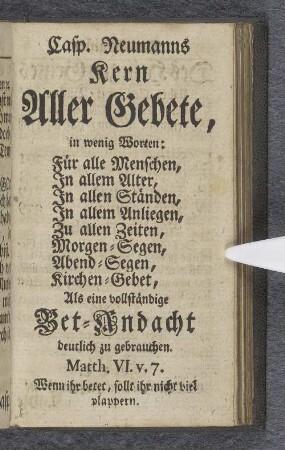 Casp. Neumanns
Kern
Aller Gebete,
in wenig Worten:
Für alle Menschen,
In allem Alter,
In allen Ständen,
In allem Anliegen,
Zu allen Zeiten,
Morgen-Segen,
Abend-Segen,
Kirchen-Gebet,
Als eine vollständige
Bet-Andacht
deutlich zu gebrauchen.
Matth. VI. v. 7.
Wenn ihr betet, sollt ihr nicht viel
plappern.